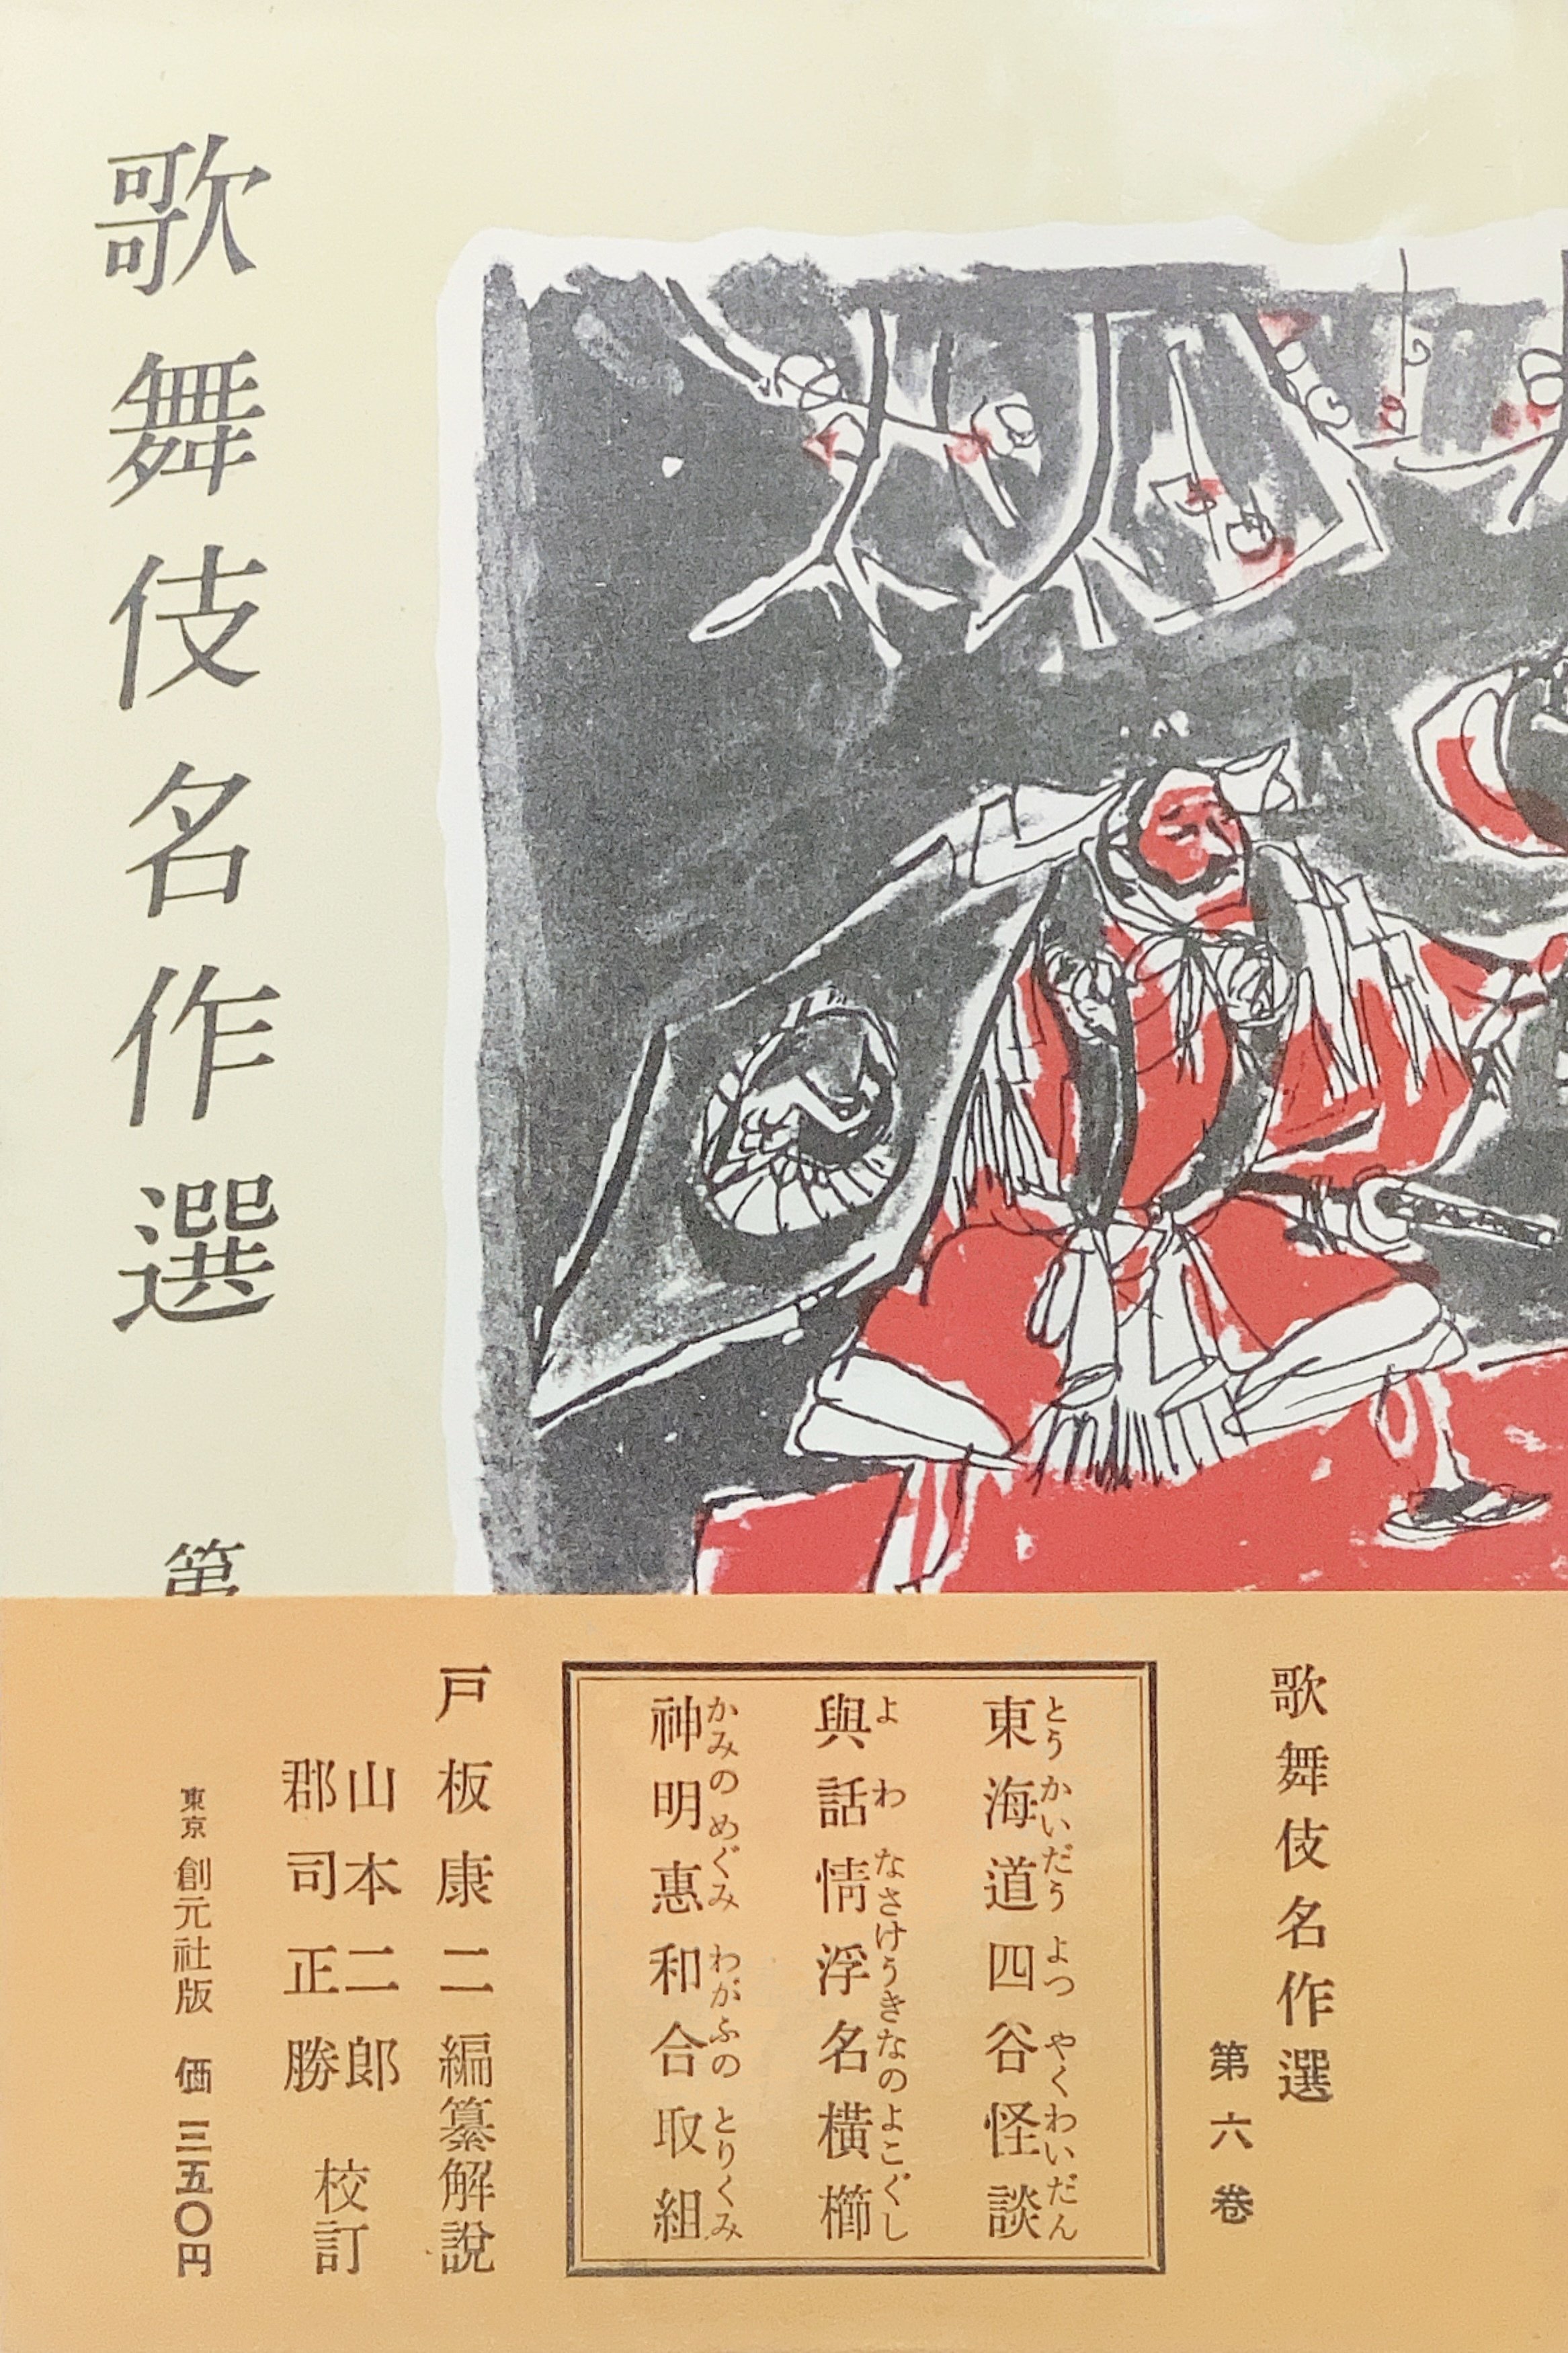 歌舞伎名作選 第
歌舞伎名作選
第六卷
東海道四谷怪談
とうかいだうよつやくわいだん
與話情浮名橫櫛
よわなさけうきなのよこぐし
神明惠和合取組
かみのめぐみわがふのとりくみ
戸板康二編纂解說
山本二郎
郡司正勝
校訂
東京 創元社版 価 三五〇円